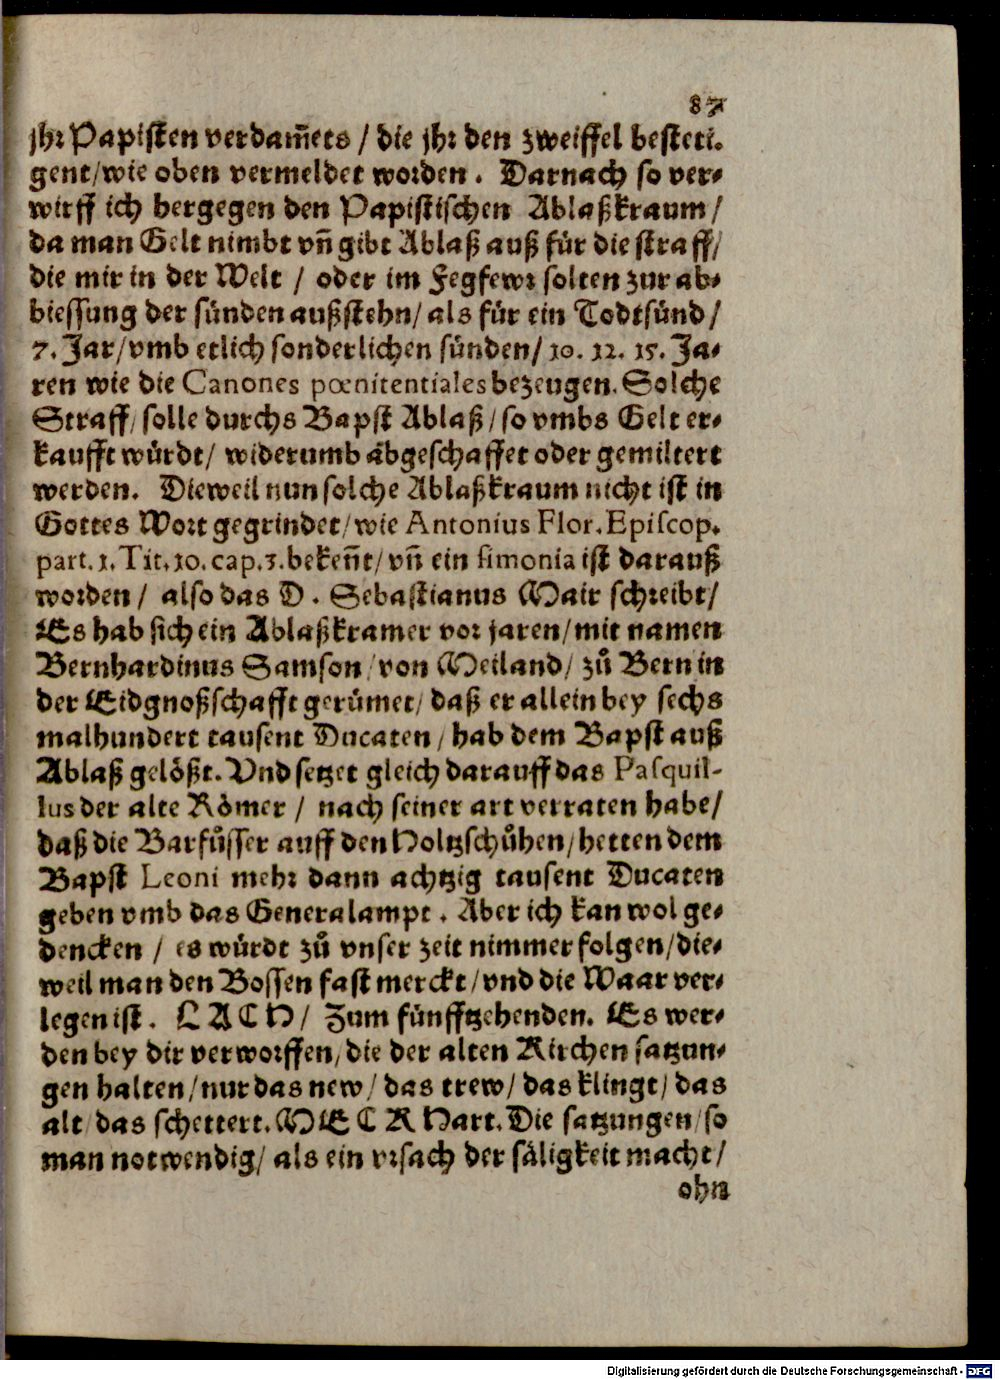 87
jhr Papisten verdam̃ets / die jhr den zweiffel besteti-
gent/wie oben vermeldet worden . Darnach so ver-
wirff ich hergegen den Papistischen Ablaßkraum /
da man Gelt nimbt vñ gibt Ablaß auß für die straff/
die mir in der Welt / oder im Fegfewr solten zur ab-
biessung der sünden außstehn/ als für ein Todtsünd /
7. Jar/vmb etlich sonderlichen sünden/ 10. 12. 15. Ja-
ren wie die Canones pœnitentiales bezeugen. Solche
Straff/ solle durchs Bapst Ablaß/ so vmbs Gelt er-
kaufft würdt/ widerumb abgeschaffet oder gemiltert
werden. Dieweil nun solche Ablaßkraum nicht ist in
Gottes Wort gegrindet/wie Antonius Flor. Episcop.
part. 1. Tit. 10. cap. 3. bekeñt/ vñ ein simonia ist darauß
worden / also das D . Sebastianus Mair schreibt/
Es hab sich ein Ablaßkramer vor jaren/mit namen
Bernhardinus Samson/von Meiland/ zů Bern in
der Eidgnoßschafft gerümet/ daß er allein bey sechs
malhundert tausent Ducaten / hab dem Bapst auß
Ablaß gelößt. Vnd setzet gleich darauff das Pasquil-
lus der alte Römer / nach seiner art verraten habe/
daß die Barfůsser auff den Holtzschůhen/hetten dem
Bapst Leoni mehr dann achtzig tausent Ducaten
geben vmb das Generalampt . Aber ich kan wol ge-
dencken / es würdt zů vnser zeit nimmer folgen/die-
weil man den Bossen fast merckt/vnd die Waar ver-
legen ist . L A C H/ Zum fünfftzehenden. Es wer-
den bey dir verworffen/die der alten Kirchen satzun-
gen halten/nur das new/ das trew/ das klingt/ das
alt/ das schettert. M E C K Hart. Die satzungen/so
man notwendig/ als ein vrsach der säligkeit macht/
ohn
Digitalisierung gefördert durch die Deutsche Forschungsgemeinschaft - DFG